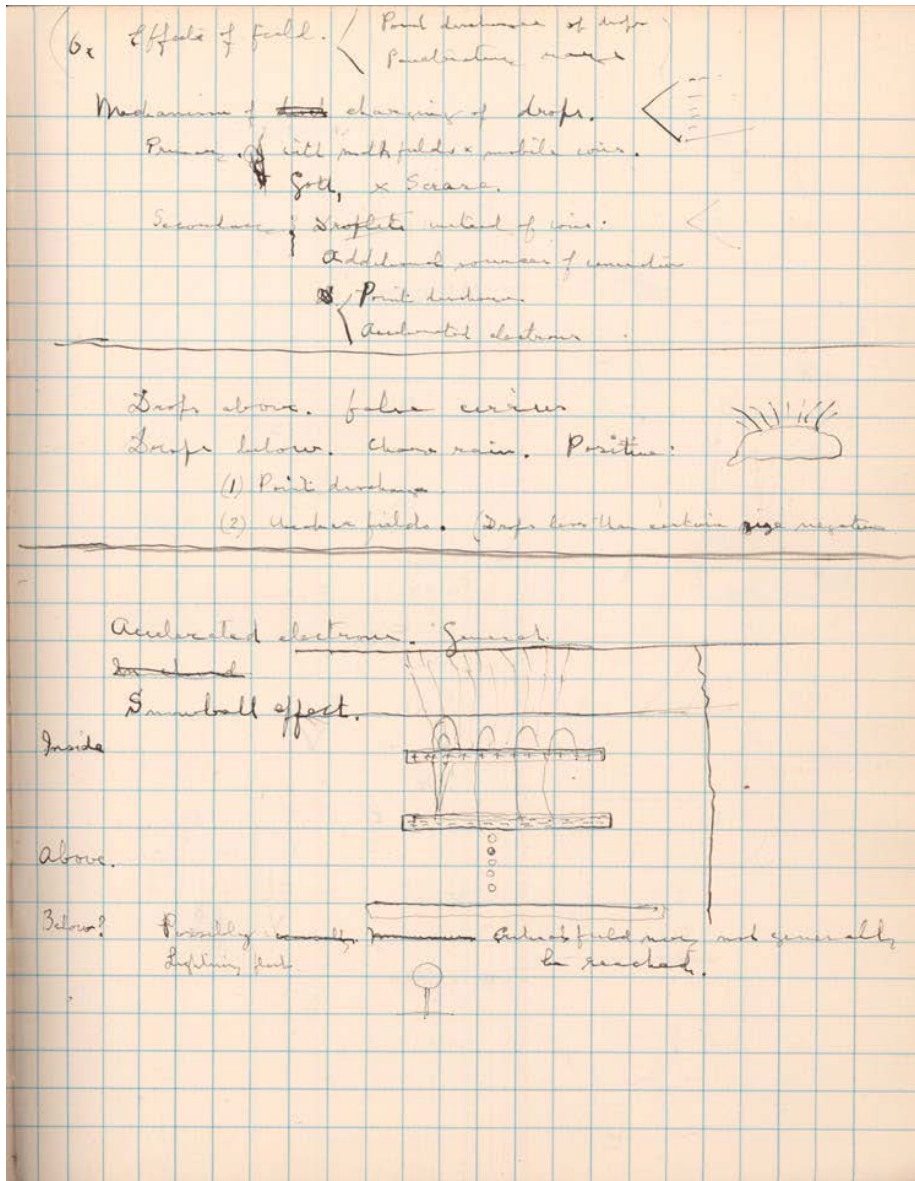 Effects of field. Point discharge of drops
Penetrating rays
Mechanism of charging of drops.
with moth fields x mobile ions.
Gott, x Scrase.
Secondary Droplets instead of ions:
Additional sources of ionization
Point discharge
Accelerated electrons
Drops above. false cirrus
Drops below. Charge rain. Positive:
(1) Point discharge
(2) Weaker fields. (Drops less than certain size negative
Accelerated electrons. General
In cloud
Snowball effect.
Inside
+ + + + + + + + + + +
Above.
Below? Possibly field may not generally
Lightning be reached.